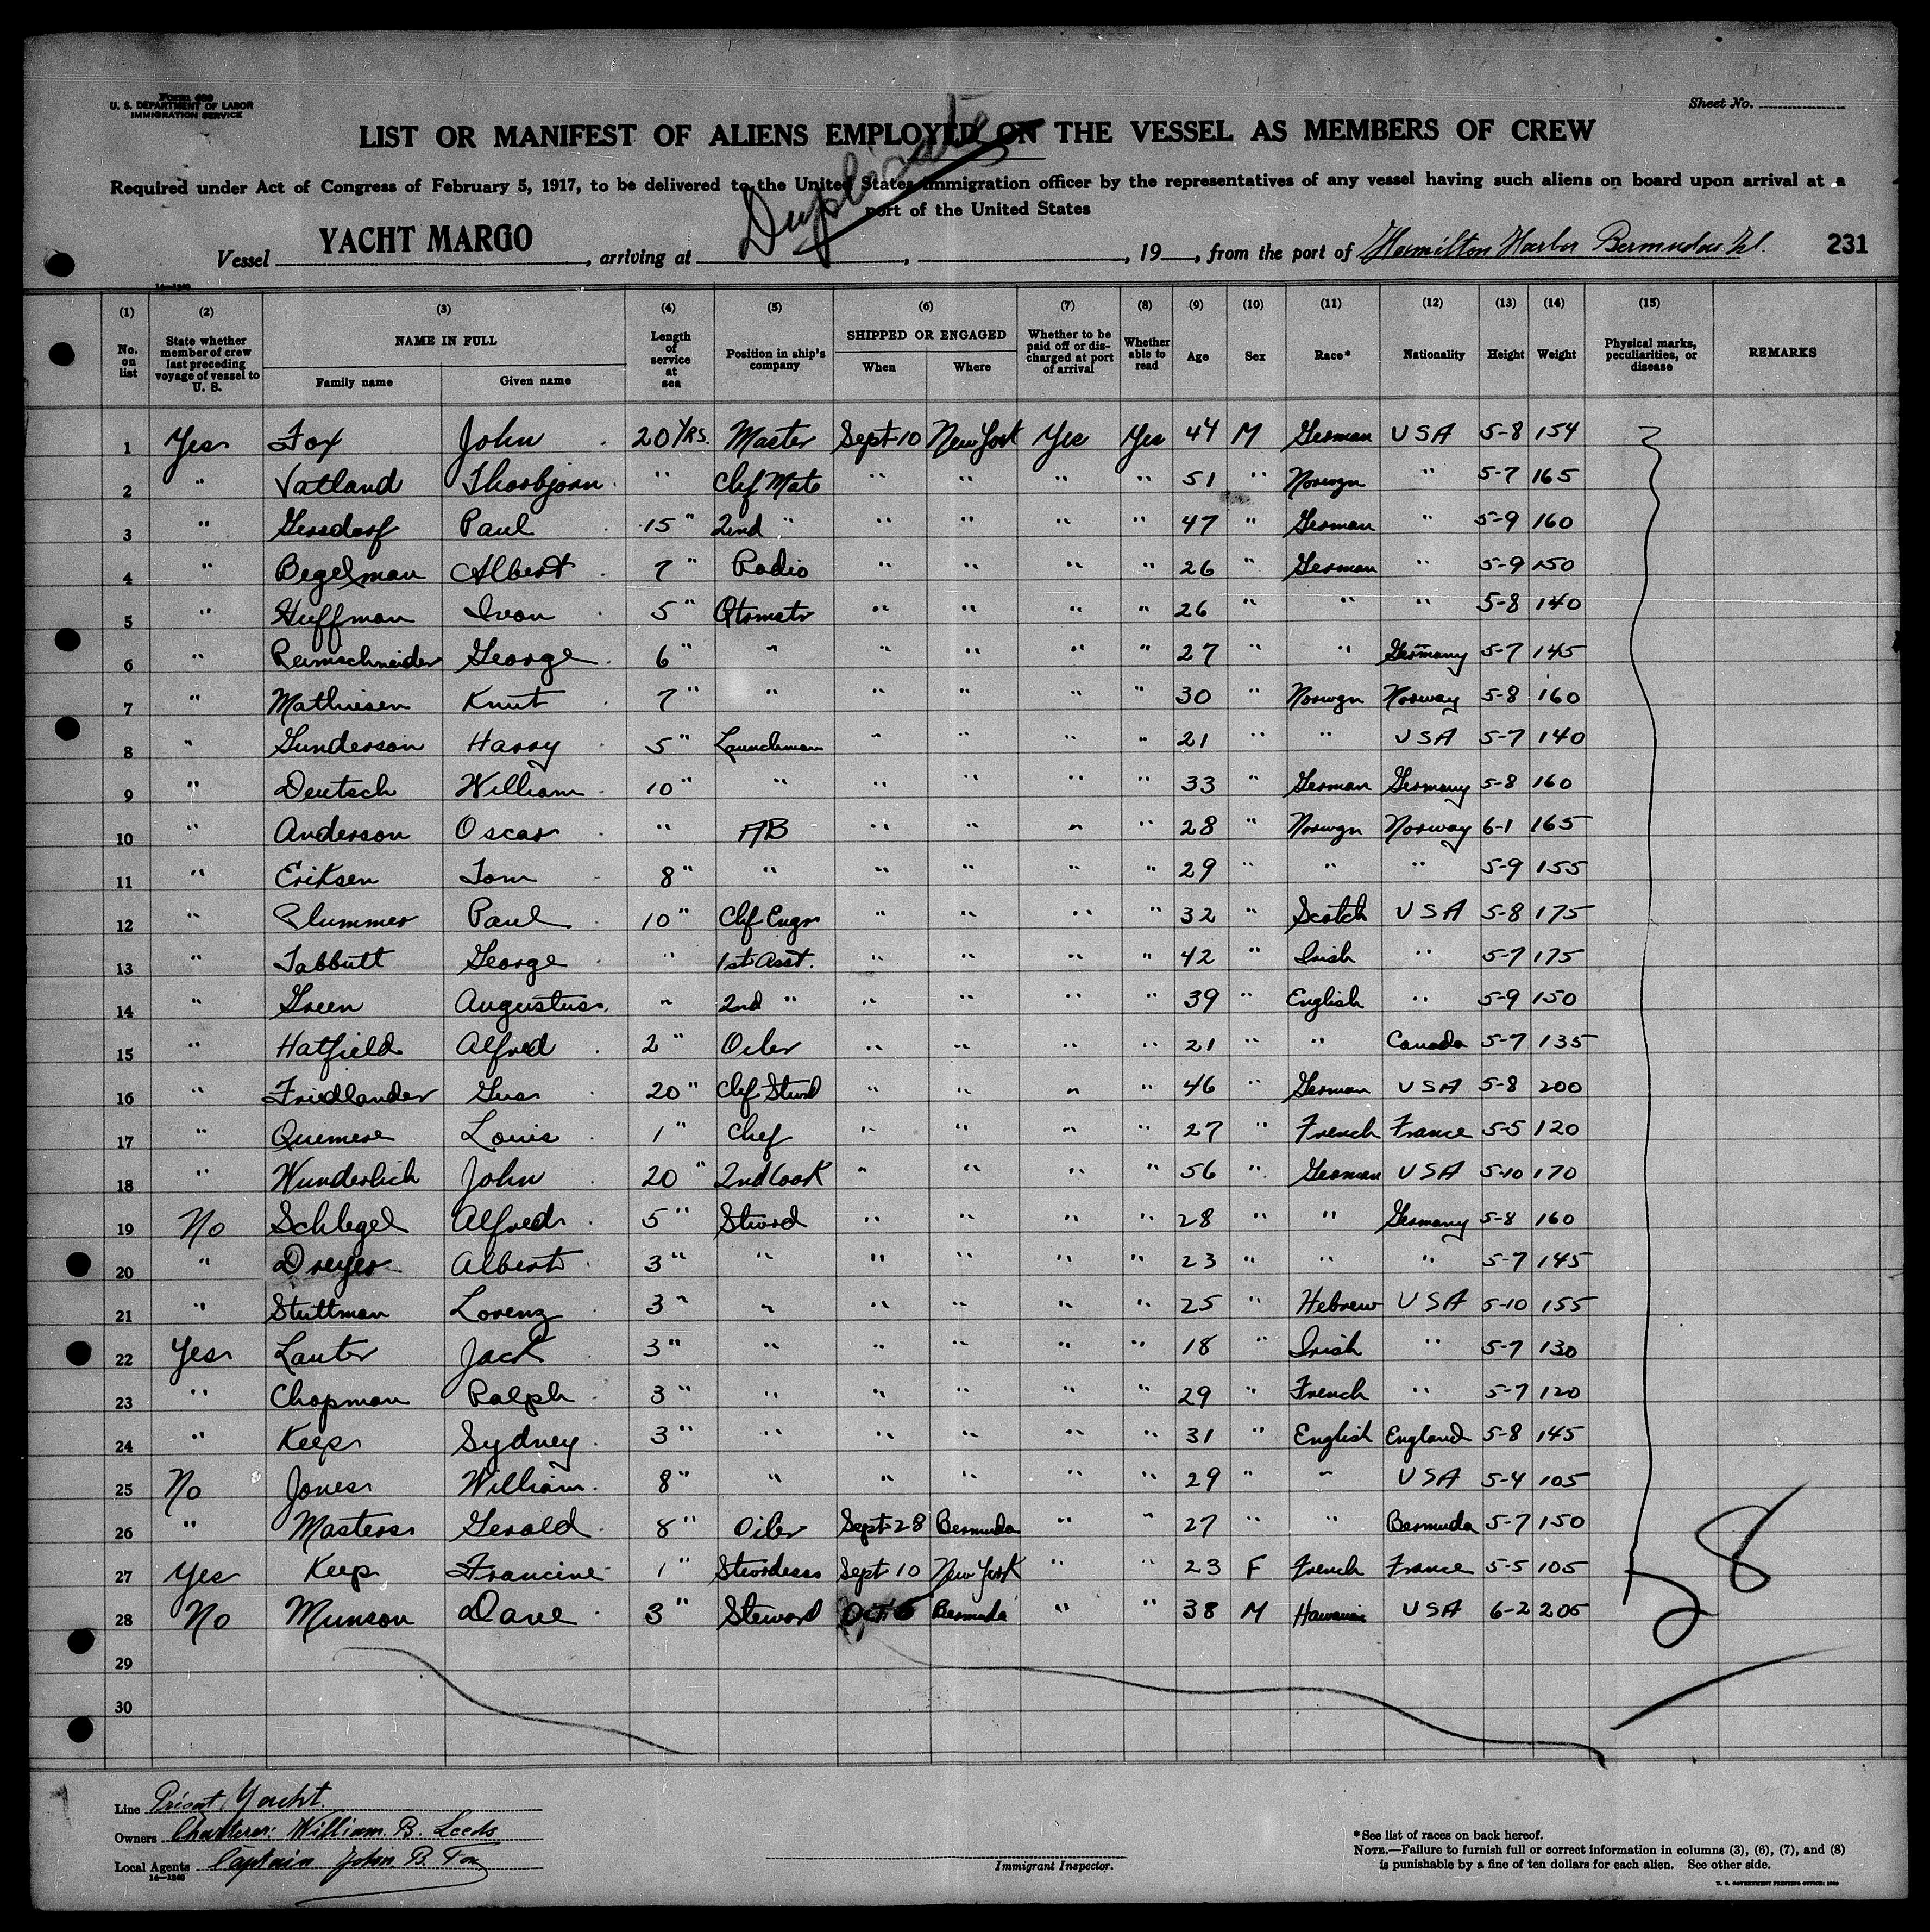 Form 689
U. S. DEPARTMENT OF LABOR
IMMIGRATION SERVICE
Sheet No.
LIST OR MANIFEST OF ALIENS EMPLOYED ON THE VESSEL AS MEMBERS OF CREW
Duplicate
Required under Act of Congress of February 5, 1917, to be delivered to the United States immigration officer by the representatives of any vessel having such aliens on board upon arrival at a
port of the United States
Vessel YACHT MARGO, arriving at , , 19 , from the port of Hamilton Harbor Bermudas Isl. 231
14—1240
(1) (2) (3) (4) (5) (6) (7) (8) (9) (10) (11) (12) (13) (14) (15)
No. on list State whether member of crew last preceding voyage of vessel to U. S. NAME IN FULL Family name Given name Length of service at sea Position in ship's company SHIPPED OR ENGAGED When Where Whether to be paid off or discharged at port of arrival Whether able to read Age Sex Race* Nationality Height Weight Physical marks, peculiarities, or disease REMARKS
1 Yes Fox John 20 YRS. Master Sept 10 New York Yes Yes 44 M German USA 5-8 154
2 " Vatland Thorbjorn " Chf Mate " " " " 51 " Norwgn " 5-7 165
3 " Gersdorf Paul 15 " 2nd " " " " " 47 " German " 5-9 160
4 " Begelman Albert 7 " Radio " " " " 26 " German " 5-9 150
5 " Huffman Ivan 5 " Qtrmstr " " " " 26 " " " 5-8 140
6 " Remschneider George 6 " " " " " " 27 " " Germany 5-7 145
7 " Mathiesen Knut 7 " " " " " " 30 " Norwgn Norway 5-8 160
8 " Gunderson Harry 5 " Launchman " " " " 21 " " USA 5-7 140
9 " Deutsch William 10 " " " " " " 33 " German Germany 5-8 160
10 " Anderson Oscar " AB " " " " 28 " Norwgn Norway 6-1 165
11 " Eriksen Tom 8 " " " " " " 29 " " " 5-9 155
12 " Plummer Paul 10 " Chf Engr " " " " 32 " Scotch USA 5-8 175
13 " Tabbutt George " 1st Asst. " " " " 42 " Irish " 5-7 175
14 " Green Augustus " 2nd " " " " " 39 " English " 5-9 150
15 " Hatfield Alfred 2 " Oiler " " " " 21 " " Canada 5-7 135
16 " Friedlander Gus 20 " Chf Stwd " " " " 46 " German USA 5-8 200
17 " Quemere Louis 1 " Chef " " " " 27 " French France 5-5 120
18 " Wunderlich John 20 " 2nd Cook " " " " 56 " German USA 5-10 170
19 No Schlegel Alfred 5 " Stwrd " " " " 28 " " Germany 5-8 160
20 " Dreyer Albert 3 " " " " " " 23 " " " 5-7 145
21 " Stuttman Lorenz 3 " " " " " " 25 " Hebrew USA 5-10 155
22 Yes Lauter Jack 3 " " " " " " 18 " Irish " 5-7 130
23 " Chapman Ralph 3 " " " " " " 29 " French " 5-7 120
24 " Keep Sydney 3 " " " " " " 31 " English England 5-8 145
25 No Jones William 8 " " " " " " 29 " " USA 5-4 105
26 " Masters Gerald 8 " Oiler Sept 28 Bermuda " " 27 " " Bermuda 5-7 150
27 Yes Keep Francine 1 " Stwrdess Sept 10 New York " " 23 F French France 5-5 105
28 No Munson Dave 3 " Steward Oct 6 Bermuda " " 38 M Hawaiian USA 6-2 205
28
29
30
Line Privat Yacht.
Owners Charterer: William. B. Leeds
Local Agents Captain John B. Fox
14—1240
Immigrant Inspector.
*See list of races on back hereof.
NOTE.—Failure to furnish full or correct information in columns (3), (6), (7), and (8)
is punishable by a fine of ten dollars for each alien. See other side.
U. S. GOVERNMENT PRINTING OFFICE: 1930